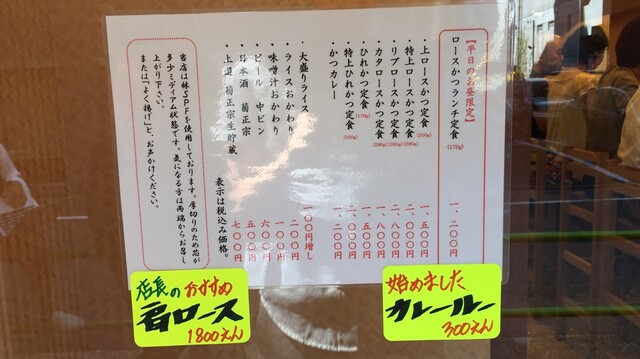 【平日のお昼限定】
ロースかつランチ定食(170g) 一、二〇〇円
・上ロースかつ定食(200g) 一、五〇〇円
・特上ロースかつ定食(280g) 二、一〇〇円
・リブロースかつ定食(280g) 一、八〇〇円
・カタロースかつ定食(280g) 一、八〇〇円
・ひれかつ定食(170g)
・特上ひれかつ定食(200g)
・かつカレー 一、二〇〇円
・大盛りライス 一〇〇円増し
・ライスおかわり 二〇〇円
・味噌汁おかわり 一〇〇円
・ビール 中ビン 六〇〇円
・日本酒 菊正宗 五〇〇円
・上選 菊正宗生貯蔵 七〇〇円
表示は税込み価格。
当店は林SPFを使用しております。厚切りのため芯が
多少ミディアム状態です。気になる方は両端からお召し
上がり下さい。
または「よく揚げ」と、お声かけください。
店長のおすすめ
肩ロース
1800えん
始めました
カレールー
300えん